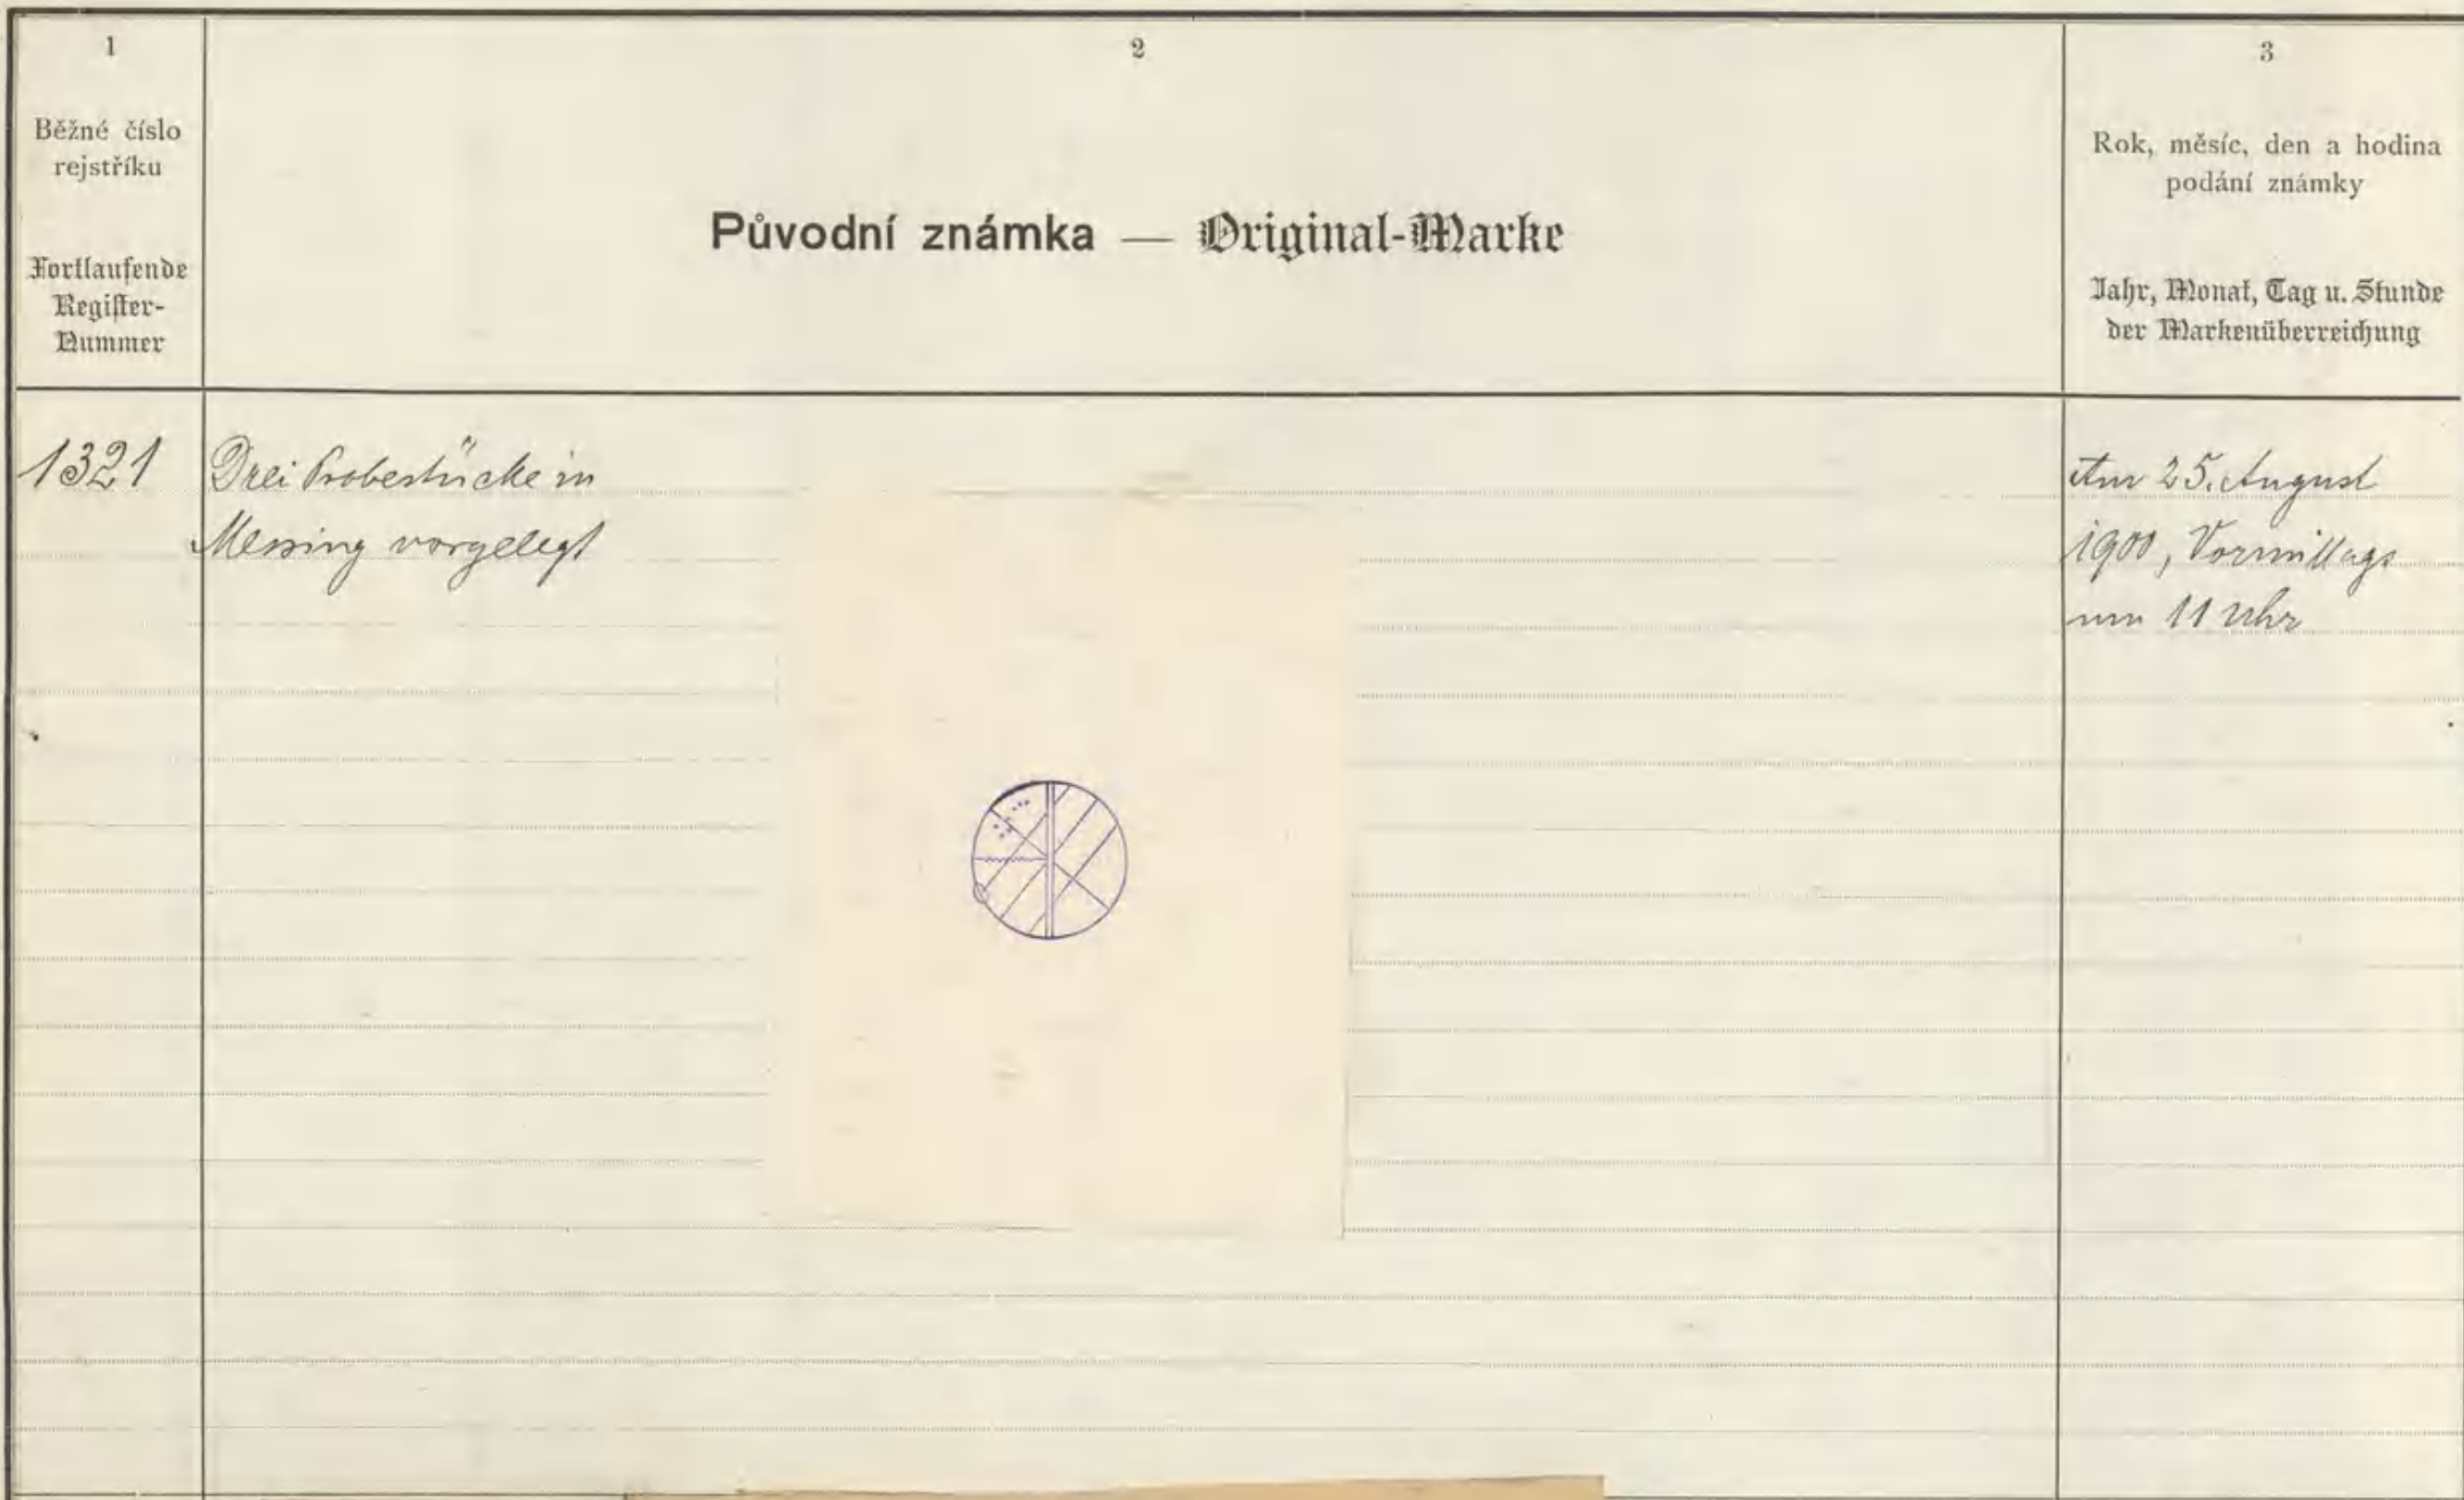 1
Běžné číslo
rejstříku
Fortlaufende
Register-
Nummer
2
Původní známka — Original-Marke
3
Rok, měsíc, den a hodina
podání známky
Jahr, Monat, Tag u. Stunde
der Markenüberreichung
1321
Drei Probestücke in
Messing vorgelegt
Am 25. August
1900, Vormittags
um 11 Uhr